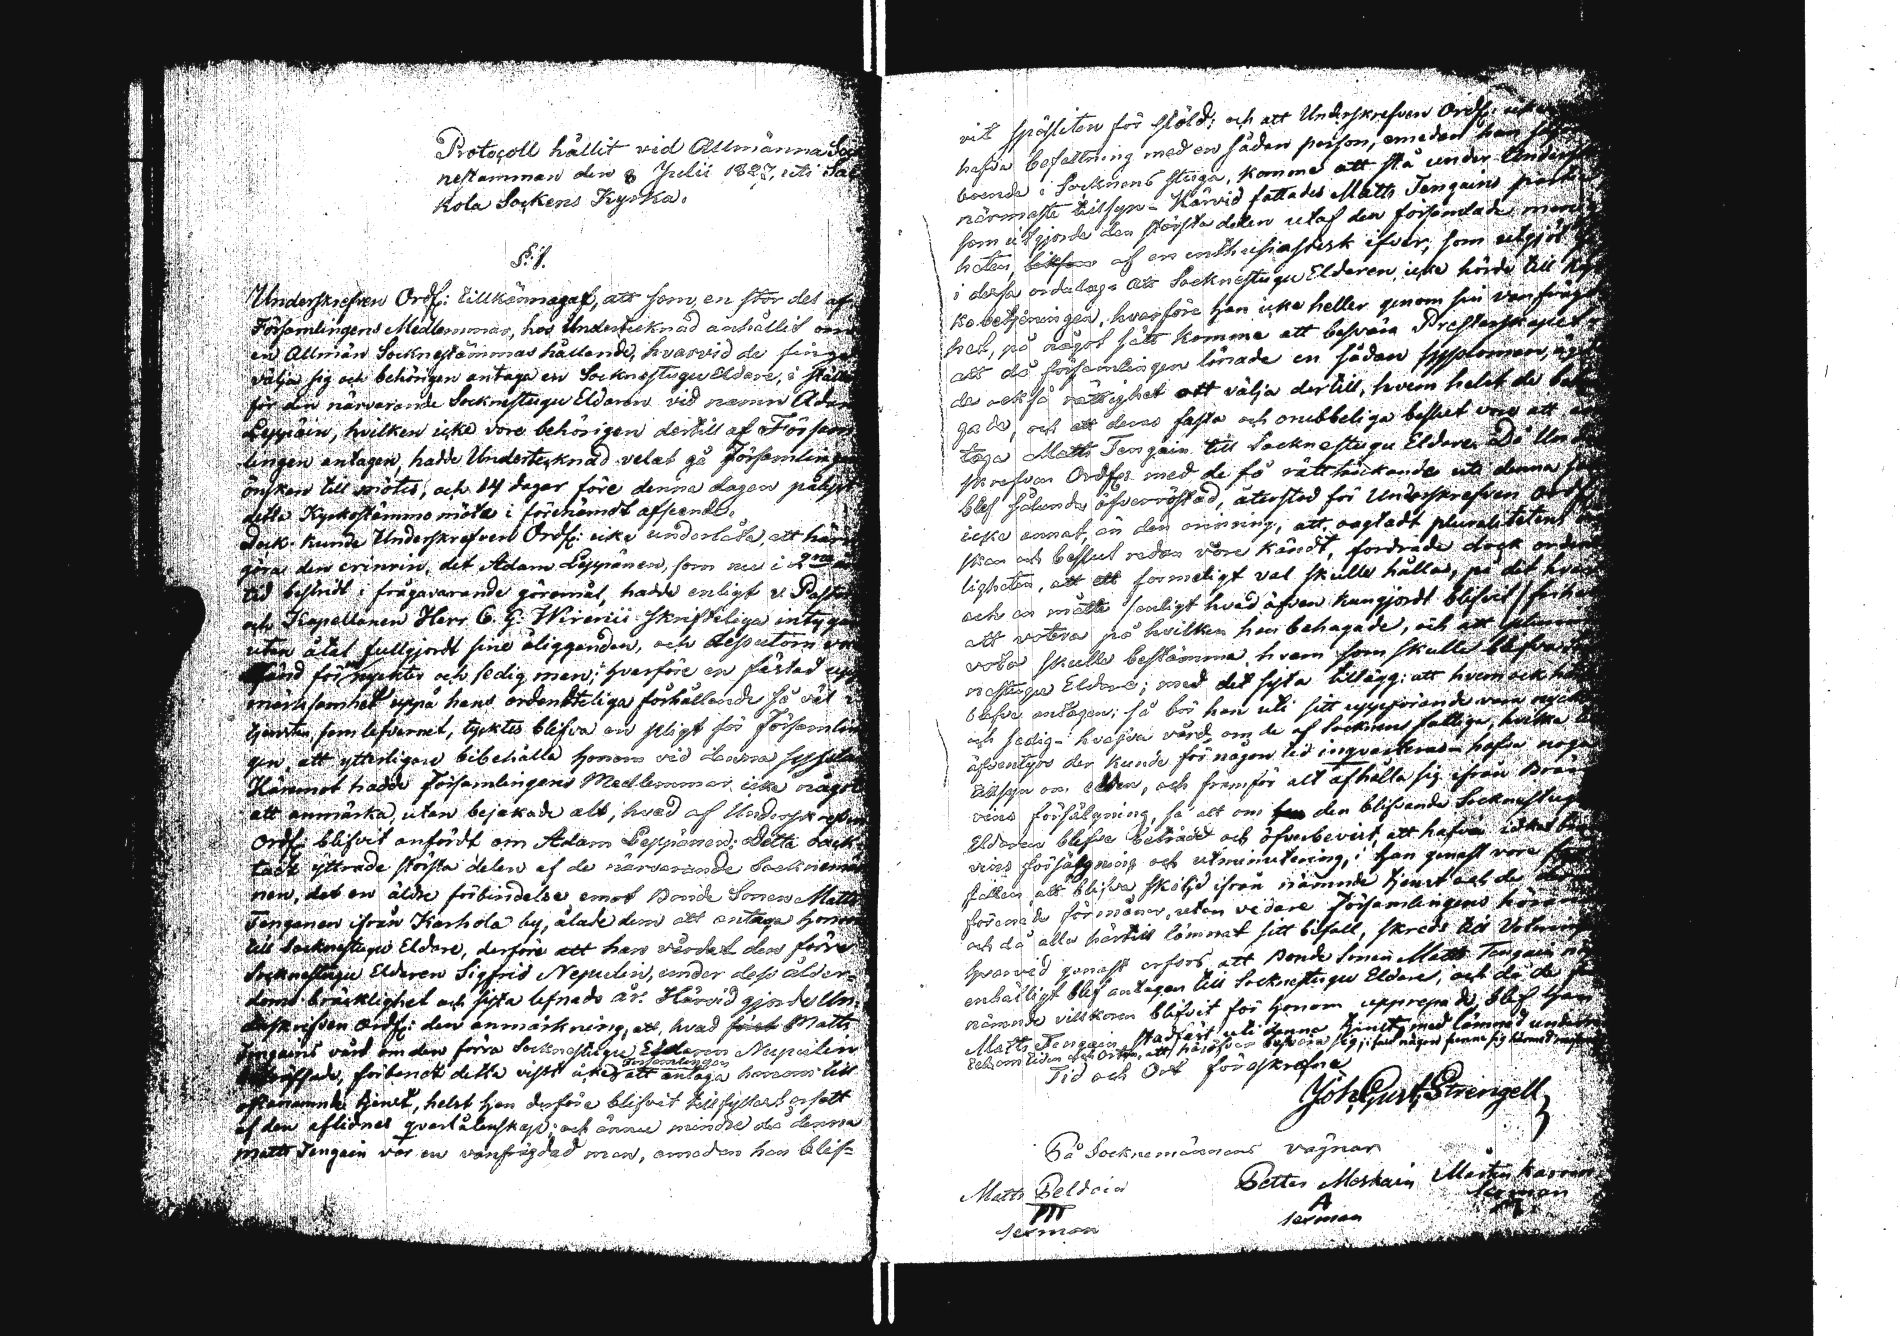 Protocoll hållit vid Allmänna Sock
nestämman den 8 Julii 1827, uti Sak
kola Sockens Kyrka.
§ 1.
Underskrefven Ordf: tillkännagaf, att som en stor del af
Församlingens Medlemmar, hos Undertecknad anhållit om
en Allmän Socknestämmas hållande, hvarvid de finge
välja sig och behörigen antaga en Socknestugu Eldare, i stället
för den närvarande Socknestugu Eldaren vid namn Adam
Leppäin, hvilken icke vore behörigen dertill af Försam
lingen antagen, hadde Undertecknad velat gå Församlingens
önskan till mötes, och 14 dagar före denna dagen pålyst
detta Kyrkostämmo möte i förenämdt afseende.
Dock kunde Underskrefven Ordf: icke underlåta, att härvid
göra den erinrin, det Adam Leppänen, som nu i 2ne
tid bestridt i frågavarande göremål, hadde enligt v. Pastor
och Kapellanen Herr C. G. Wirenii skriftliga intygan
utan åtal fullgjordt sine åliggenden, och dessutom var
känd för nyckter och sedig man; hvarföre en fästad upp
märksamhet uppå hans ordenteliga förhållande så väl i
tjensten, som lefvernet, tycktes blifva en pligt för Församlin
gen, att ytterligare bibehålla honom vid denna syssla.
Häremot hadde Församlingens Medlemmar icke något
att anmärka, utan bejakade alt, hvad af Underskrefven
Ordf: blifvit anfördt om Adam Leppänen; Detta oack-
tadt yttrade största delen af de närvarande Sockneman
nen, det en äldre förbindelse emot Bonde Sonen Matts
Tenganen ifrån Karhola by, ålade dem att antaga honom
till Socknestugu Eldare, derföre att han vårdat den förre
Socknestugu Eldaren Sigfrid Nepulin, under dess ålder-
doms bräcklighet och sista lefnads år. Härvid gjorde Un-
derskrefven Ordf: den anmärkning, att, hvad Matts
Tengains vård om den förra Socknestugu Eldaren Nepulin
beträffade, förbandt detta visst icke Församlingen att antaga honom till
oftanämnde tjenst, helst han derföre blifvit tillfyllest ersatt
af den aflidnes qvarlåtenskap; och ännu mindre då denna
Matts Tengain var en vanfrägdad man, emedan han blif-
vit för stöld; och att Underskrefven Ordf: icke
hafva befattning med en sådan person, emedan han
boende i Socknens Stuga, komme att stå under
närmaste tillsyn. Härvid fattades Matts Tengains
som utgjorde den största delen utaf den församlade men
heten, af en enthusiastisk ifver, som utgjöt
i dessa ordalag: Att Socknestugu Eldaren icke hörde till Kyr
kobetjeningen, hvarföre han icke heller genom sin vanfrägd
het, på något sätt komme att besvära Presterskapet
att då församlingen lönade en sådan syssloman, ägde
de också rättighet att välja dertill, hvem helst de beha
gade, och att deras fasta och orubbeliga beslut vore att an
taga Matts Tengain till Socknestugu Eldare. Då Under
skrefven Ordf: med de få rätttänckande uti denna
blef sålunda öfverröstad, återstod för Underskrefven Ordf:
icke annat, än den erinring, att, oagtadt pluralitetens ön
skan och beslut redan vore kändt, fordrade dock ordent
ligheten, att ett formeligt val skulle hållas, på det hvar
och en måtte enligt hvad äfven kungjordt blifvit
att votera på hvilken han behagade, och att
vota skulle bestämma hvem som skulle blifva
nestugu Eldare; med det sista tillägg: att hvem ock
blefve antagen; så bör han uti sitt uppförande vara nyckter
och sedig hvarjva vård om de af socknens fattiga, hvilka
äfventyrs der kunde för någon tid inqvarteras hafva noga
tillsyn om elden, och framför alt afhålla sig ifrån Bränn
vins försäljning, så att om den blifvande Socknestugu
Eldaren blefve beträdd och öfverbevist, att hafva idkat bränn
vins försäljning och utminutering, han genast vore
fallen, att blifva skiljd ifrån nämnde tjenst och de derm
förenade förmåner, utan vidare Församlingens hörande
och då alla härtill lämnat sitt bifall, skreds till Votering
hvarvid genast erfors att Bonde Sonen Matts Tengain
enhälligt blef antagen till Socknestugu Eldare, och då de
nämnde villkoren blifvit för honom upprepade, blef han
Matts Tengain stadfäst uti denna tjenst, med lämnad underrät
telse om tiden och orten, att häröfver besvära sig,
Tid och Ort föreskrefne
Joh. Gust. Strengell
På Sockenmännens vägnar
Matts Peldoin
sexman
Petter Meskain
A
sexman
Mårten
sexman